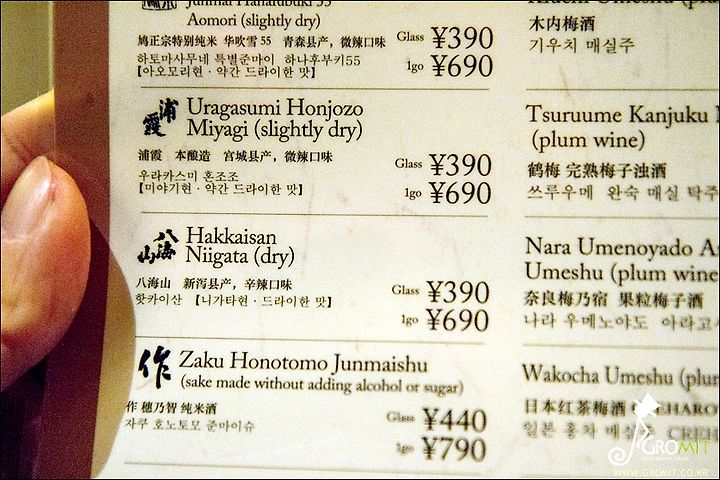 Junmai Hanafubuki 55
Aomori (slightly dry)
鳩正宗特别纯米 华吹雪 55 青森县产，微辣口味
하토마사무네 특별준마이 하나후부키55
【아오모리현・약간 드라이한 맛】
Glass ¥390
1go ¥690
浦霞
Uragasumi Honjozo
Miyagi (slightly dry)
浦霞 本酿造 宮城县产，微辣口味
우라카스미 혼조조
【미야기현・약간 드라이한 맛】
Glass ¥390
1go ¥690
八海山
Hakkaisan
Niigata (dry)
八海山 新泻县产，辛辣口味
핫카이산 【니가타현・드라이한 맛】
Glass ¥390
1go ¥690
作
Zaku Honotomo Junmaishu
(sake made without adding alcohol or sugar)
作 穗乃智 纯米酒
자쿠 호노토모 준마이슈
Glass ¥440
1go ¥790
Umeshu (plum
木内梅酒
기우치 매실주
Tsuruume Kanjuku
(plum wine)
鹤梅 完熟梅子浊酒
쓰루우메 완숙 매실 탁주
Nara Umenoyado
Umeshu (plum wine
奈良梅乃宿 果粒梅子酒
나라 우메노야도 아라고
Wakocha Umeshu (plum
日本红茶梅酒
일본 홍차 매실
GROMIT
WWW.GROMIT.CO.KR